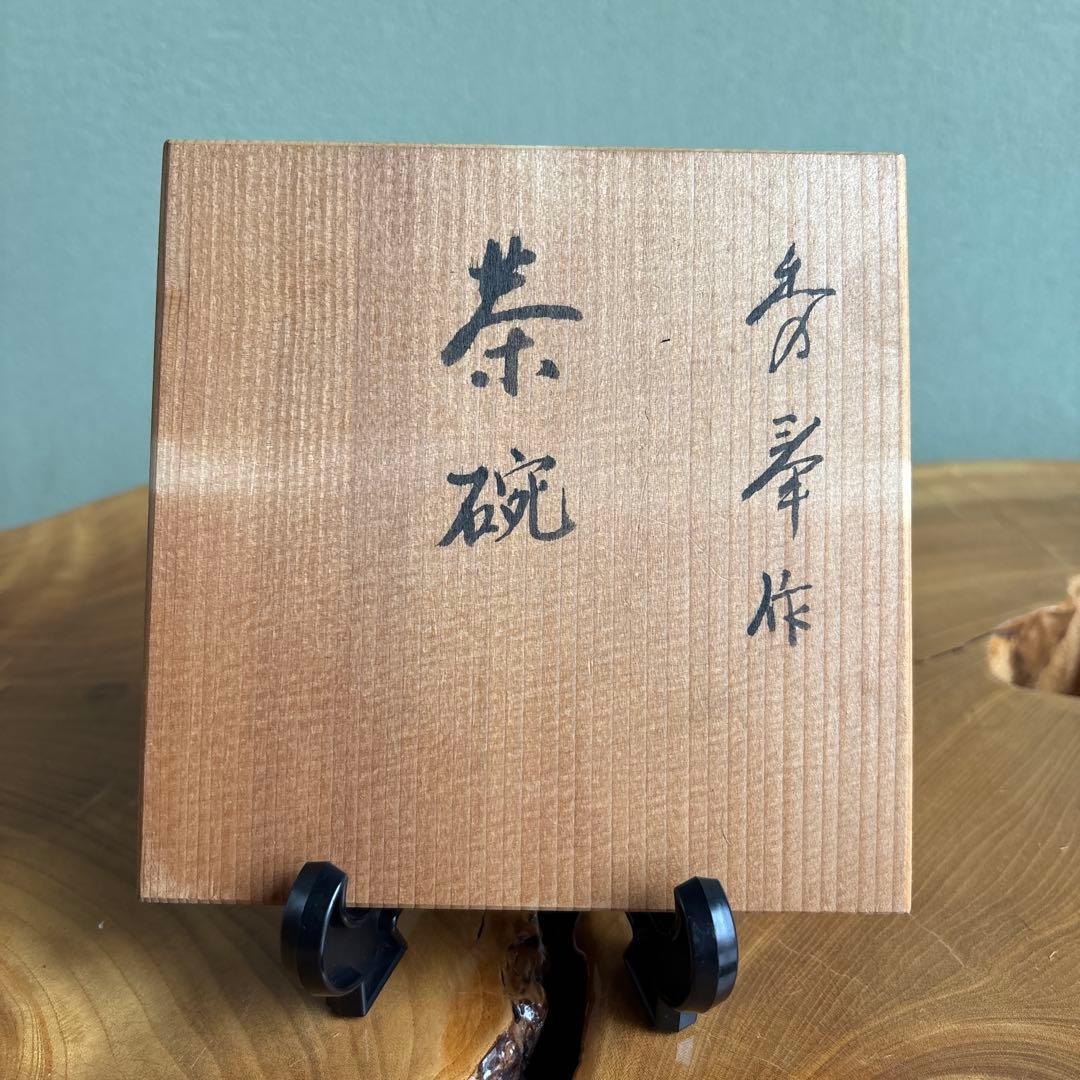 秀峯作
茶碗